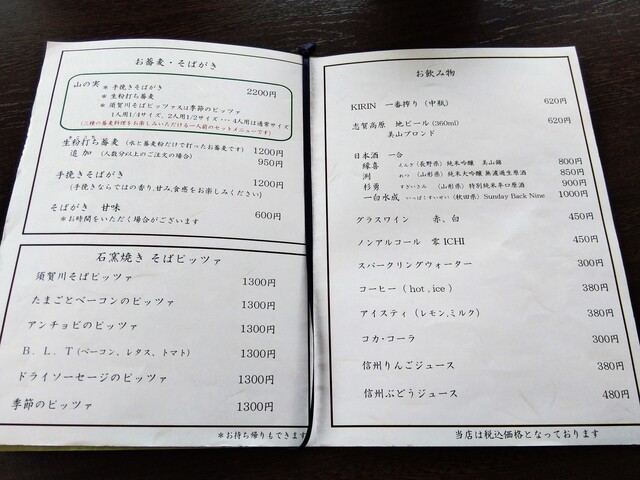 お蕎麦・そばがき
山の実 ＊ 手挽きそばがき 2200円
＊ 生粉打ち蕎麦
＊ 須賀川そばピッツァ又は季節のピッツァ
1人用1/4サイズ、2人用1/2サイズ ･･･ 4人用は通常サイズ
(三種の蕎麦料理をお楽しみいただける一人前のセットメニューです)
生粉打ち蕎麦 (水と蕎麦粉だけで打ったお蕎麦です) 1200円
追加 (人数分以上のご注文の場合) 950円
手挽きそばがき 1200円
(手挽きならではの香り,甘み,食感をお楽しみください)
そばがき 甘味 600円
＊お時間をいただく場合がございます
石窯焼き そばピッツァ
須賀川そばピッツァ 1300円
たまごとベーコンのピッツァ 1300円
アンチョビのピッツァ 1300円
B. L. T (ベーコン、レタス、トマト) 1300円
ドライソーセージのピッツァ 1300円
季節のピッツァ 1300円
＊お持ち帰りもできます
お飲み物
KIRIN 一番搾り (中瓶) 620円
志賀高原 地ビール (360ml) 620円
美山ブロンド
日本酒 一合
縁喜 えんぎ (長野県) 純米吟醸 美山錦 800円
洌 れつ (山形県) 純米大吟醸 無濾過生原酒 850円
杉勇 すぎいさみ (山形県) 特別純米辛口原酒 900円
一白水成 いっぱくすいせい (秋田県) Sunday Back Nine 1000円
グラスワイン 赤、白 450円
ノンアルコール 零ICHI 450円
スパークリングウォーター 300円
コーヒー ( hot , ice ) 380円
アイスティ (レモン,ミルク) 380円
コカ・コーラ 300円
信州りんごジュース 380円
信州ぶどうジュース 480円
当店は税込価格となっております